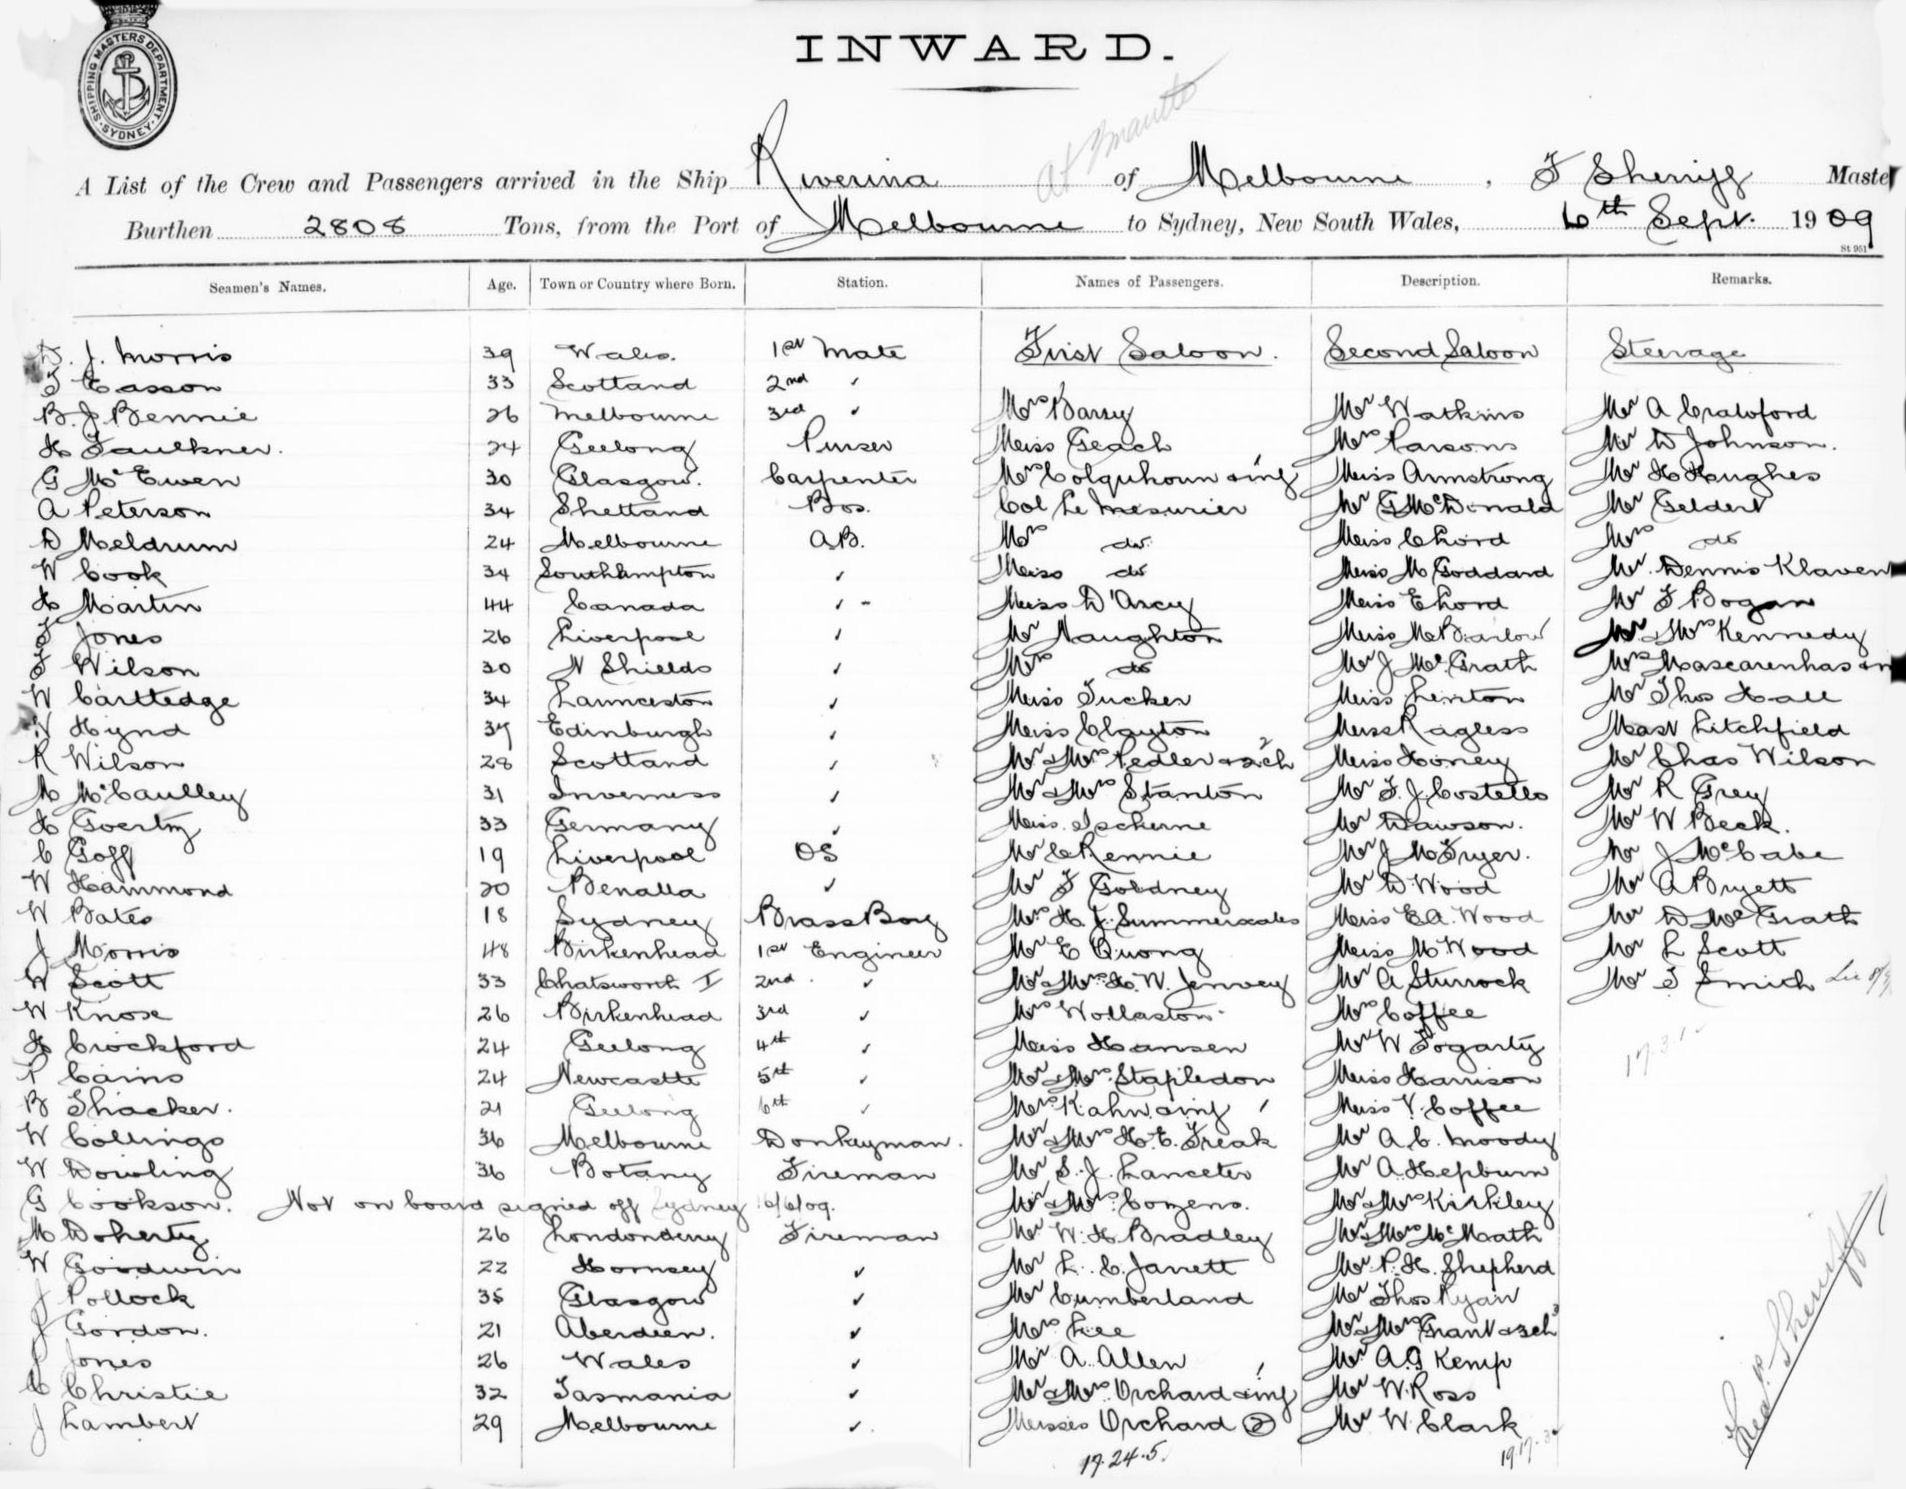 SHIPPING MASTERS DEPARTMENT SYDNEY
INWARD.
A List of the Crew and Passengers arrived in the Ship Riverina of Melbourne, F Sherriff Master
Burthen 2808 Tons, from the Port of Melbourne to Sydney, New South Wales, 6th Sept. 1909
St 951
Seamen's Names. Age. Town or Country where Born. Station. Names of Passengers. Description. Remarks.
D. J. Morris 39 Wales. 1st Mate First Saloon. Second Saloon Steerage
T Easson 33 Scotland 2nd "
B. J. Bennie 26 Melbourne 3rd " Mrs Barry Mr Watkins Mr A Crawford
H Faulkner. 24 Geelong Purser Miss Geach Mrs Parsons Mr D Johnson.
G McEwen 30 Glasgow. Carpenter Mrs Colquhoun & inf Miss Armstrong Mr H Hughes
A Peterson 34 Shetland Bos. Col Le Mesurier Mr G McDonald Mr Geldert
D Meldrum 24 Melbourne A.B. Mrs do Miss Chord Mrs do
W Cook 34 Southhampton " Miss do Miss M Goddard Mr Dennis Klaven
H Martin 44 Canada " Miss D'Arcy Miss E Lord Mr F Bogan
F Jones 26 Liverpool " Mr Naughton Miss M Barlow Mr & Mrs Kennedy
F Wilson 30 N Shields " Mrs do Mr J McGrath Mrs Mascarenhas & in
W Cartledge 34 Launceston " Miss Tucker Miss Linton Mr Thos Hall
Hynd 37 Edinburgh " Miss Clayton Miss Ragless Mast Litchfield
R Wilson 28 Scotland " Mr & Mrs Pedler & 2 ch Miss Honey Mr Chas Wilson
M McCaulley 31 Inverness " Mr & Mrs Stanton Mr F. J. Costello Mr R Grey
H Goertz 33 Germany " Miss Ischerne Mr Dawson. Mr W Beck.
C Goff 19 Liverpool OS Mr C Rennie Mr J McFryer. Mr J McCabe
W Hammond 20 Benalla " Mr F Goldney Mr D Wood Mr A Bryett
W Bates 18 Sydney Brass Boy Mrs H. J. Summerscales Miss E.A. Wood Mr D McGrath
J Morris 48 Birkenhead 1st Engineer Mr E Quong Miss M Wood Mr L Scott
W Scott 33 Chatsworth I 2nd " Mr & Mrs H. W. Jenvey Mr A Sturrock Mr T Smith
W Knose 26 Birkenhead 3rd " Mrs Wollaston Mrs Coffee
H Crockford 24 Geelong 4th " Miss Hansen Mr W Fogarty
P Cains 24 Newcastle 5th " Mr & Mrs Stapledon Miss Harrison
B Thacker. 21 Geelong 6th " Mrs Kahn & inf Miss V. Coffee
W Collings 36 Melbourne Donkeyman. Mr & Mrs H. E. Freak Mr A. C. Moody
W Dowling 36 Botany Fireman Mr S. J. Lanceter Mr A Hepburn
G Cookson. Not on board signed off Sydney 6/09. Mr & Mrs Cozens. Mr & Mrs Kirkley
M Doherty 26 Londonderry Fireman Mr W. H Bradley Mr & Mrs McMath
W Goodwin 22 Hornsey " Mr L. C. Jarrett Mr P. H. Shepherd
J Pollock 35 Glasgow " Mr Cumberland Mr Thos Ryan
J Gordon. 21 Aberdeen. " Mrs Lee Mr & Mrs Grant & 3 ch
Jones 26 Wales " Mr A. Allen Mr A G Kemp
C Christie 32 Tasmania " Mr & Mrs Orchard & inf Mr W. Ross
J Lambert 29 Melbourne " Misses Orchard (2) Mr W. Clark
17.24.5.
Fred. P. Sherriff